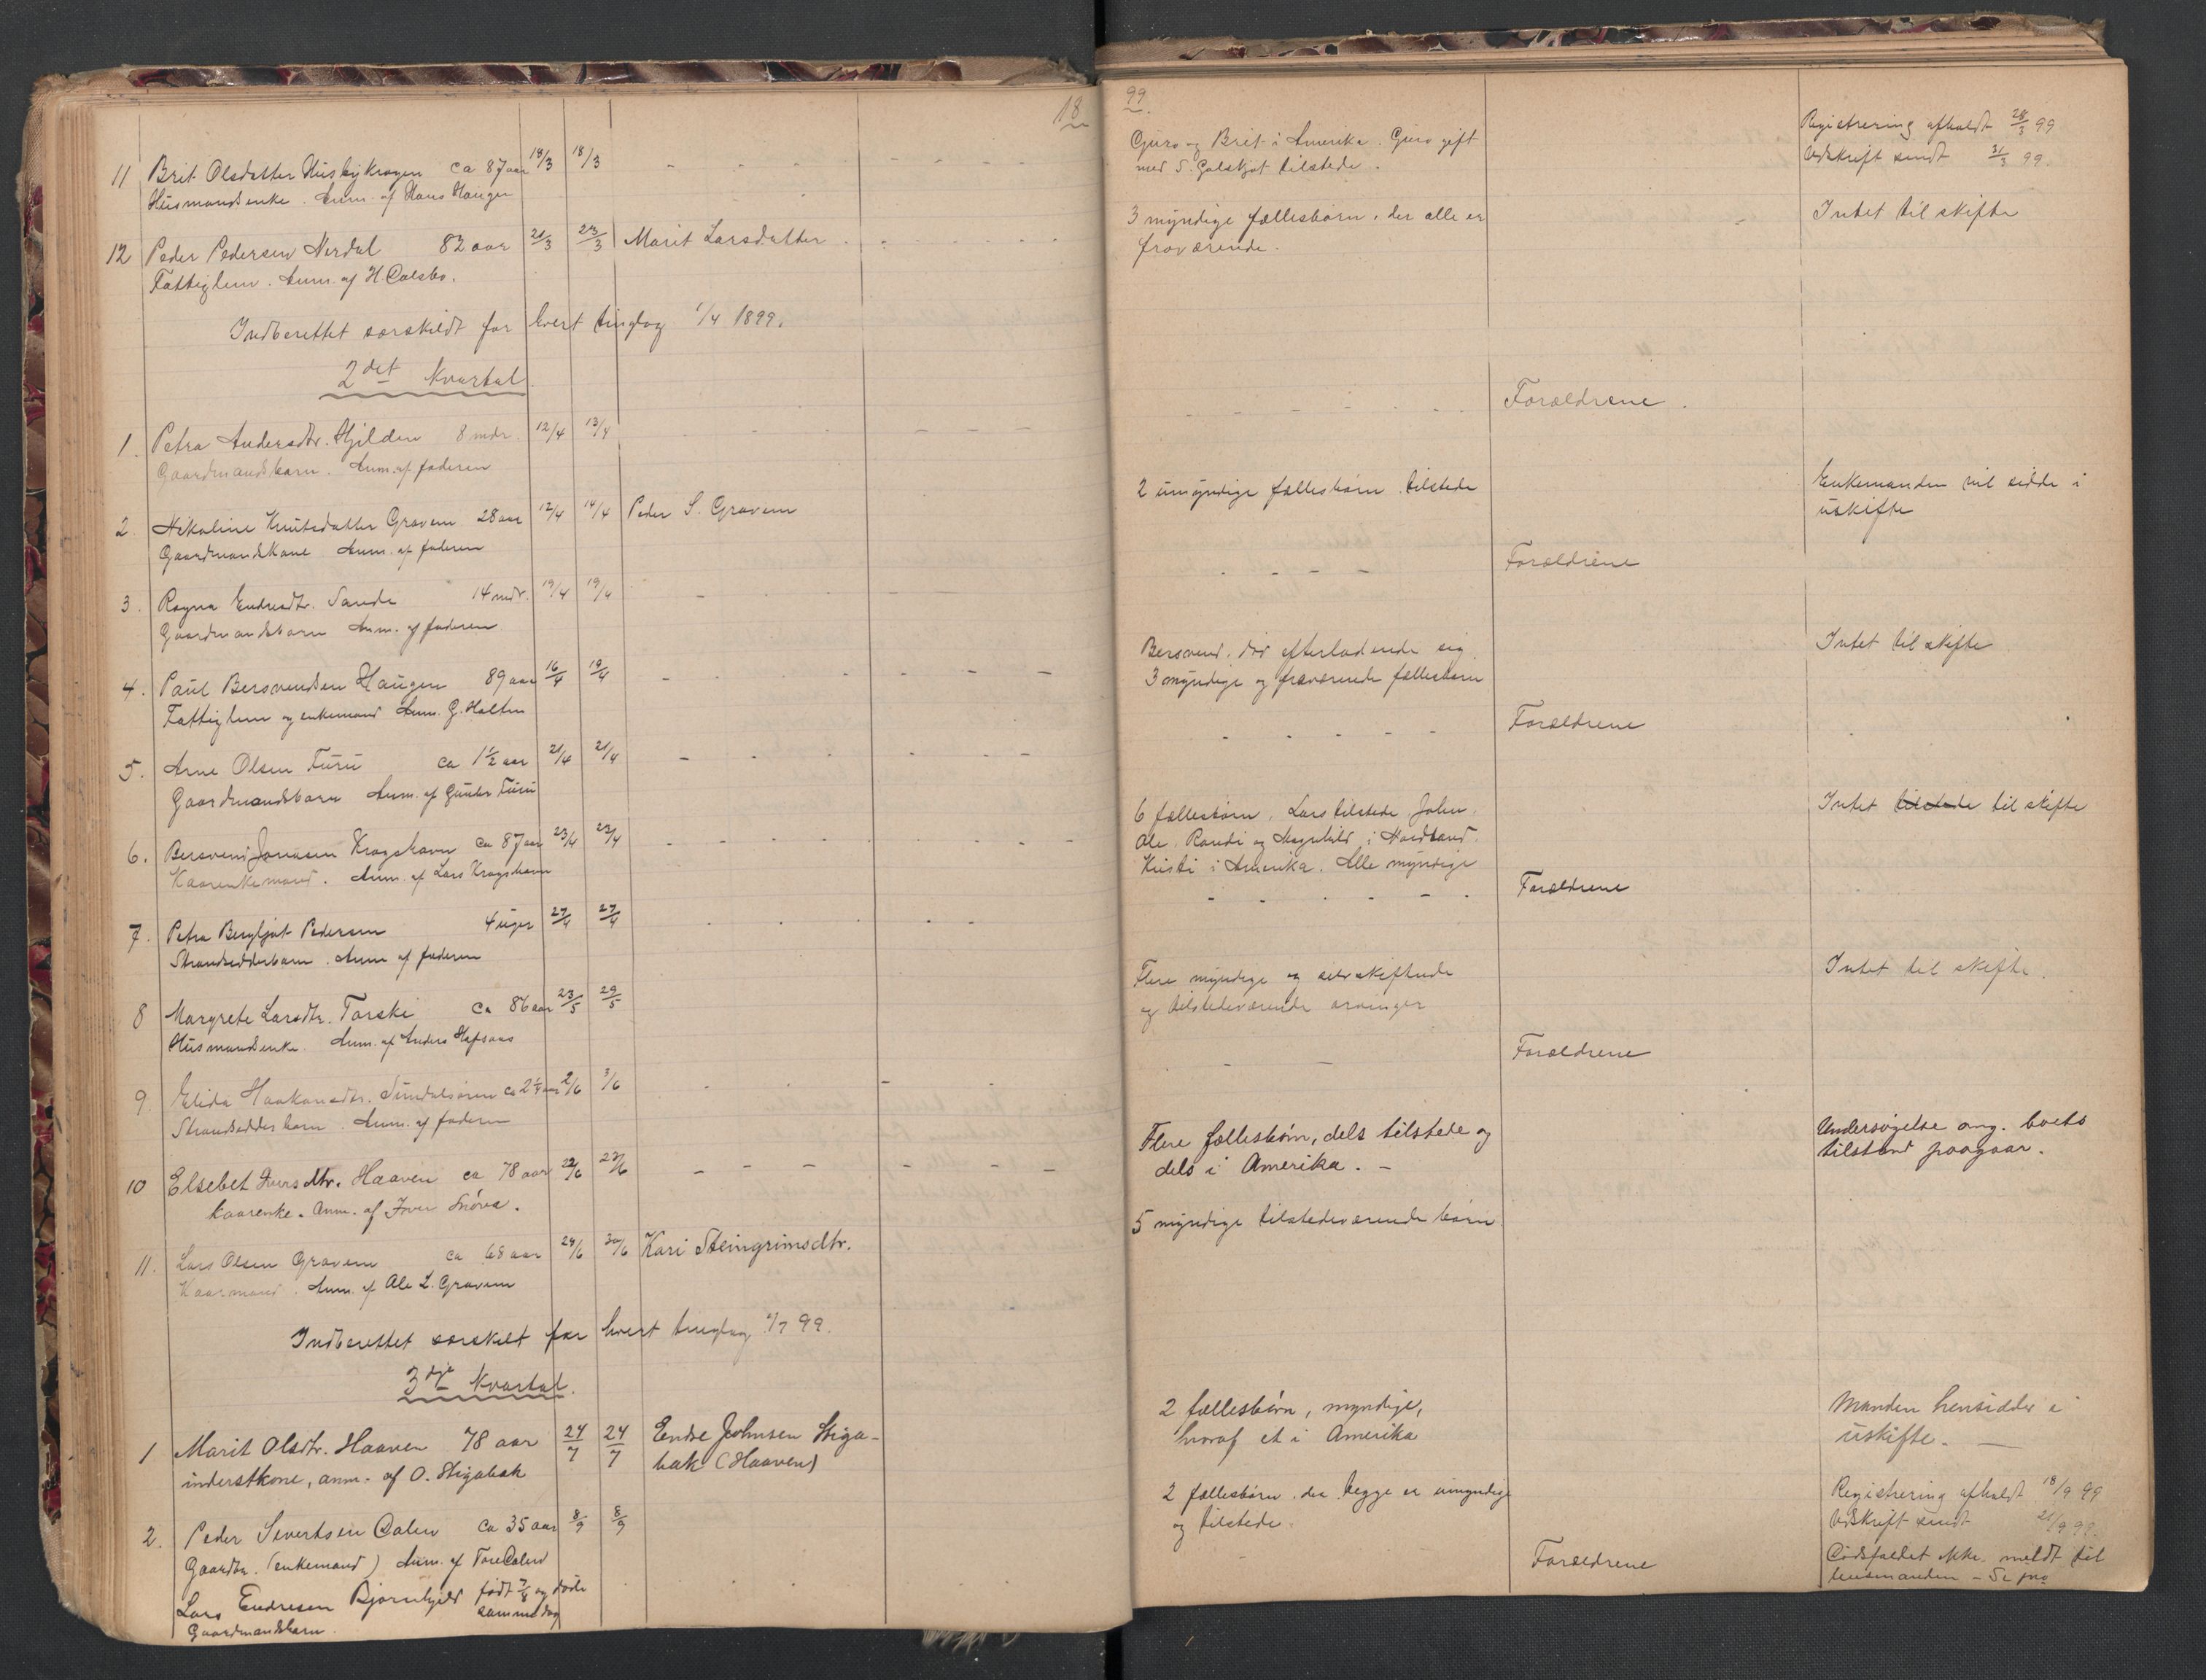 18
11 Brit Olsdatter Husbykragen ca 87 aar 14/3 18/3
Husmandsenke. Anm. af Hans Hauger
12 Peder Pedersen Nerdal 82 aar 21/3 23/3 Marit Larsdatter
Fattiglem. Anm. af H Calsbo.
Indberettet særskildt for hvert tinglag 1/4 1899.
2det Kvartal
1. Petra Andersdtr. Hjilden 8 mdr. 12/4 13/4
Gaardmandsbarn. Anm. af faderen
2 Nikoline Knutsdatter Gravem 28 aar 12/4 14/4 Peder S. Gravem
Gaardmandskone Anm. af faderen
3. Ragna Endresdtr. Sande 14 mdr. 19/4 19/4
Gaardmandsbarn Anm. af faderen
4. Paul Bersvendsen Haugen 89 aar 16/4 19/4
Fattiglem og enkemand Anm. G. Holten
5. Arne Olsen Furu ca 1½ aar 21/4 21/4
Gaardmandsbarn Anm. af Gunder Furu
6. Bersvend Jonassen Kragshavn ca 87 aar 23/4 23/4
Kaarenkemand. Anm. af Lars Kragshavn
7. Petra Bergljot Pedersen 4 uger 27/4 27/4
Strandsidderbarn. Anm af faderen
8 Margrete Larsdtr. Torske ca 86 aar 23/5 29/5
Husmandsenke. Anm. af Anders Hafsaas
9. Elida Haakonsdtr. Sundalsøren ca 2¼ aar 2/6 3/6
Strandsidderbarn. Anm. af faderen
10 Elsebet Iversdtr. Haaven ca 78 aar 22/6 23/6
kaarenke. Anm. af Iver Snøva.
11. Lars Olsen Gravem ca 68 aar 24/6 30/6 Kari Steingrimsdtr.
Kaarmand. Anm. af Ole L. Gravem
Indberettet særskilt for hvert tinglag 1/7 99.
3dje Kvartal.
1 Marit Olsdtr. Haaven 78 aar 24/7 24/7 Endre Johnsen Stiga-
inderstkone, anm. af O. Stigabak bak (Haaven)
2. Peder Sivertsen Dalen ca 35 aar 8/9 8/9
Gaardbr. (enkemand) Anm. af Tore Dalen
Lars Endresen Bjørnhjell født 7/8 og døde
samme dag
Gaardmandsbarn.
99.
Guro og Brit i Amerika. Guro gift Registrering afholdt 28/3 99
med S. Galskjøt tilstede. Udskrift sendt 31/3 99.
3 myndige fællesbørn, der alle er Intet til skifte
fraværende.
Forældrene.
2 umyndige fællesbørn tilstede Enkemanden vil sidde i
uskifte
Forældrene
Bersvend, død efterladende sig Intet til skifte
3 myndige og fraværende fællesbørn
Forældrene
6 fællesbørn, Lars tilstede John, Intet tilstede til skifte
Ole, Randi og Magnhild i Nordland.
Kristi i Amerika. Alle myndige
Forældrene
Flere myndige og selvskiftende Intet til skifte.
og tilstedeværende arvinger
Forældrene
Flere fællesbørn, dels tilstede og Undersøgelse ang. boets
dels i Amerika. - tilstand paagaar.
5 myndige tilstedeværende børn
2 fællesbørn, myndige, Manden hensidder i
hvoraf et i Amerika uskifte. -
2 fællesbørn, der begge er umyndige Registrering afholdt 18/9 99
og tilstede. Udskrift sendt 21/9 99.
Forældrene Dødsfaldet ikke meldt til
lensmanden - Se